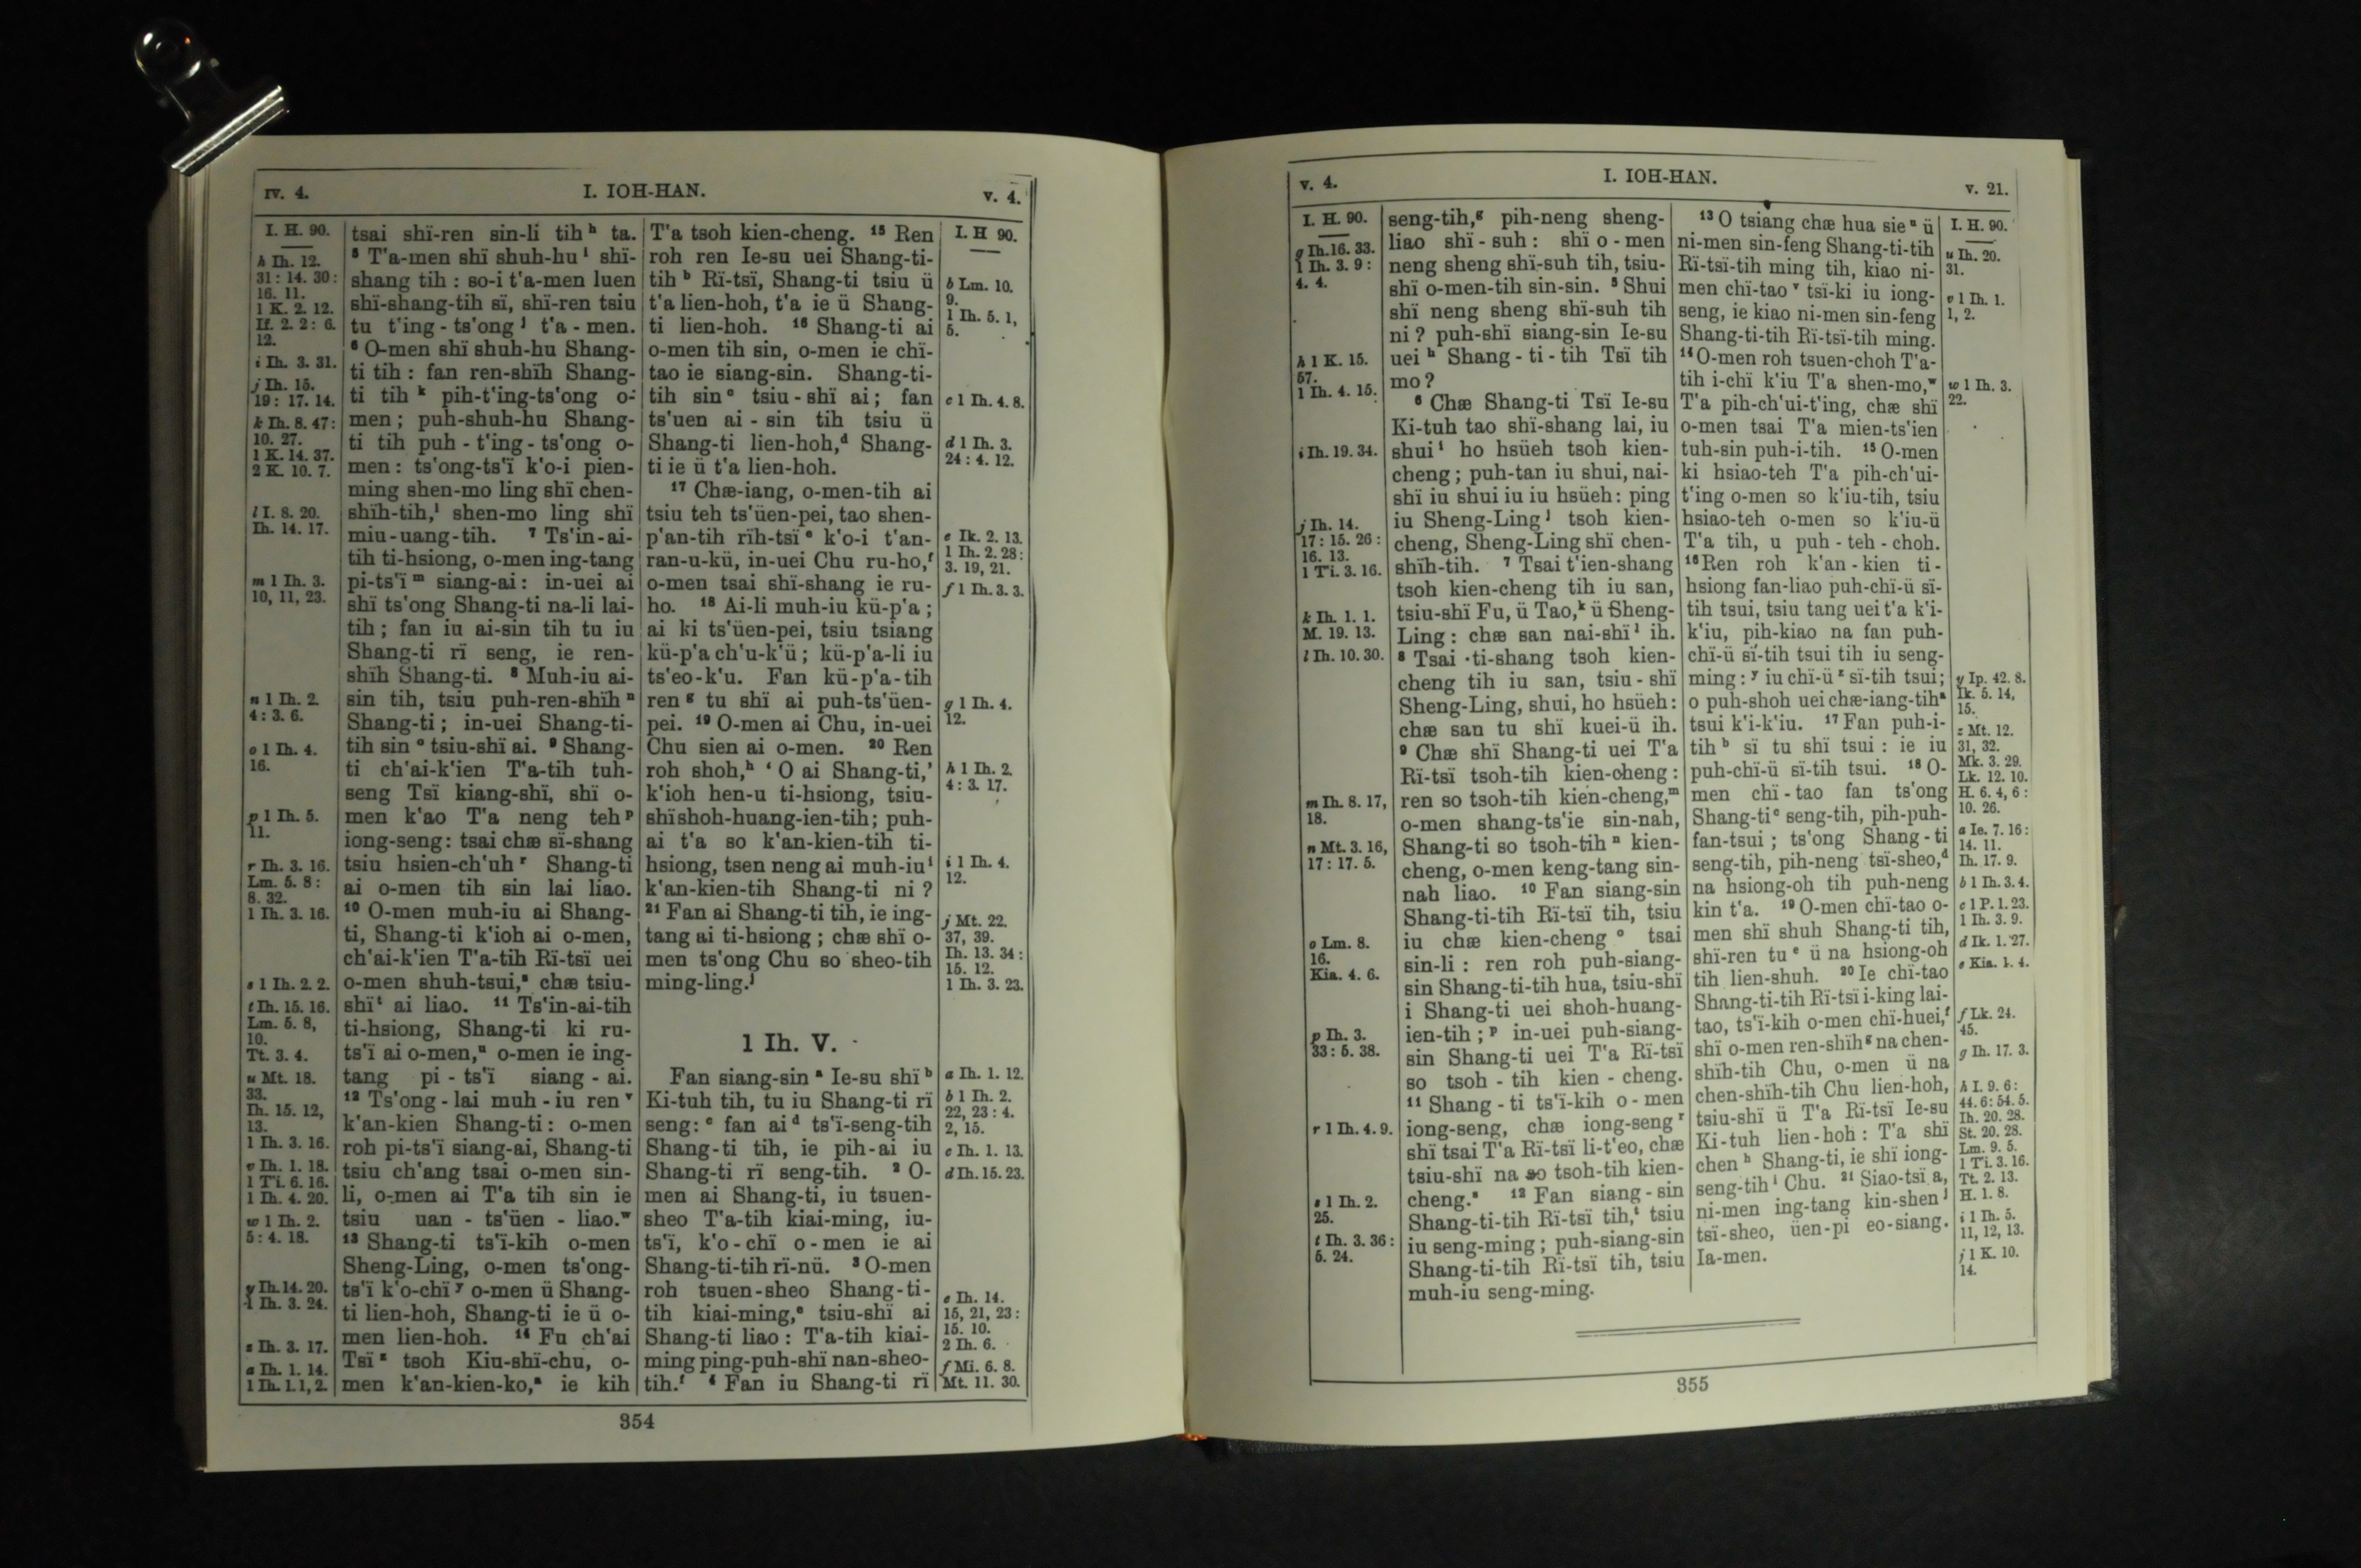 IV. 4.
I. IOH-HAN.
V. 4.
I. H. 90.
h Ih. 12.
31: 14. 30:
16. 11.
1 K. 2. 12.
If. 2. 2: 6.
12.
i Ih. 3. 31.
j Ih. 15.
19: 17. 14.
k Ih. 8. 47:
10. 27.
1 K. 14. 37.
2 K. 10. 7.
l I. 8. 20.
Ih. 14. 17.
m 1 Ih. 3.
10, 11, 23.
n 1 Ih. 2.
4: 3. 6.
o 1 Ih. 4.
16.
p 1 Ih. 5.
11.
r Ih. 3. 16.
Lm. 5. 8:
8. 32.
1 Ih. 3. 16.
s 1 Ih. 2. 2.
t Ih. 15. 16.
Lm. 5. 8,
10.
Tt. 3. 4.
u Mt. 18.
33.
Ih. 15. 12,
13.
1 Ih. 3. 16.
v Ih. 1. 18.
1 Ti. 6. 16.
1 Ih. 4. 20.
w 1 Ih. 2.
5: 4. 18.
y Ih. 14. 20.
1 Ih. 3. 24.
z Ih. 3. 17.
a Ih. 1. 14.
1 Ih. 1. 1, 2.
tsai shï-ren sin-li tih ʰ ta.
⁵ T'a-men shï shuh-hu ⁱ shï-
shang tih : so-i t'a-men luen
shï-shang-tih sï, shï-ren tsiu
tu t'ing-ts'ong ʲ t'a-men.
⁶ O-men shï shuh-hu Shang-
ti tih : fan ren-shïh Shang-
ti tih ᵏ pih-t'ing-ts'ong o-
men; puh-shuh-hu Shang-
ti tih puh-t'ing-ts'ong o-
men: ts'ong-ts'ï k'o-i pien-
ming shen-mo ling shï chen-
shïh-tih,ˡ shen-mo ling shï
miu-uang-tih. ⁷ Ts'in-ai-
tih ti-hsiong, o-men ing-tang
pi-ts'ï ᵐ siang-ai: in-uei ai
shï ts'ong Shang-ti na-li lai-
tih; fan iu ai-sin tih tu iu
Shang-ti rï seng, ie ren-
shïh Shang-ti. ⁸ Muh-iu ai-
sin tih, tsiu puh-ren-shïh ⁿ
Shang-ti; in-uei Shang-ti-
tih sin ᵒ tsiu-shï ai. ⁹ Shang-
ti ch'ai-k'ien T'a-tih tuh-
seng Tsï kiang-shï, shï o-
men k'ao T'a neng teh ᵖ
iong-seng: tsai chæ sï-shang
tsiu hsien-ch'uh ʳ Shang-ti
ai o-men tih sin lai liao.
¹⁰ O-men muh-iu ai Shang-
ti, Shang-ti k'ioh ai o-men,
ch'ai-k'ien T'a-tih Rï-tsï uei
o-men shuh-tsui,ˢ chæ tsiu-
shï ᵗ ai liao. ¹¹ Ts'in-ai-tih
ti-hsiong, Shang-ti ki ru-
ts'ï ai o-men,ᵘ o-men ie ing-
tang pi-ts'ï siang-ai.
¹² Ts'ong-lai muh-iu ren ᵛ
k'an-kien Shang-ti: o-men
roh pi-ts'ï siang-ai, Shang-ti
tsiu ch'ang tsai o-men sin-
li, o-men ai T'a tih sin ie
tsiu uan-ts'üen-liao.ʷ
¹³ Shang-ti ts'ï-kih o-men
Sheng-Ling, o-men ts'ong-
ts'ï k'o-chï ʸ o-men ü Shang-
ti lien-hoh, Shang-ti ie ü o-
men lien-hoh. ¹⁴ Fu ch'ai
Tsï ᶻ tsoh Kiu-shï-chu, o-
men k'an-kien-ko,ᵃ ie kih
T'a tsoh kien-cheng. ¹⁵ Ren
roh ren Ie-su uei Shang-ti-
tih ᵇ Rï-tsï, Shang-ti tsiu ü
t'a lien-hoh, t'a ie ü Shang-
ti lien-hoh. ¹⁶ Shang-ti ai
o-men tih sin, o-men ie chï-
tao ie siang-sin. Shang-ti-
tih sin ᶜ tsiu-shï ai; fan
ts'uen ai-sin tih tsiu ü
Shang-ti lien-hoh,ᵈ Shang-
ti ie ü t'a lien-hoh.
¹⁷ Chæ-iang, o-men-tih ai
tsiu teh ts'üen-pei, tao shen-
p'an-tih rïh-tsï ᵉ k'o-i t'an-
ran-u-kü, in-uei Chu ru-ho,ᶠ
o-men tsai shï-shang ie ru-
ho. ¹⁸ Ai-li muh-iu kü-p'a;
ai ki ts'üen-pei, tsiu tsiang
kü-p'a ch'u-k'ü; kü-p'a-li iu
ts'eo-k'u. Fan kü-p'a-tih
ren ᵍ tu shï ai puh-ts'üen-
pei. ¹⁹ O-men ai Chu, in-uei
Chu sien ai o-men. ²⁰ Ren
roh shoh,ʰ 'O ai Shang-ti,'
k'ioh hen-u ti-hsiong, tsiu-
shï shoh-huang-ien-tih; puh-
ai t'a so k'an-kien-tih ti-
hsiong, tsen neng ai muh-iu ⁱ
k'an-kien-tih Shang-ti ni?
²¹ Fan ai Shang-ti tih, ie ing-
tang ai ti-hsiong; chæ shï o-
men ts'ong Chu so sheo-tih
ming-ling.ʲ
1 Ih. V.
Fan siang-sin ᵃ Ie-su shï ᵇ
Ki-tuh tih, tu iu Shang-ti rï
seng: ᶜ fan ai ᵈ ts'ï-seng-tih
Shang-ti tih, ie pih-ai iu
Shang-ti rï seng-tih. ² O-
men ai Shang-ti, iu tsuen-
sheo T'a-tih kiai-ming, iu-
ts'ï, k'o-chï o-men ie ai
Shang-ti-tih rï-nü. ³ O-men
roh tsuen-sheo Shang-ti-
tih kiai-ming,ᵉ tsiu-shï ai
Shang-ti liao: T'a-tih kiai-
ming ping-puh-shï nan-sheo-
tih.ᶠ ⁴ Fan iu Shang-ti rï
I. H 90.
b Lm. 10.
9.
1 Ih. 5. 1,
5.
c 1 Ih. 4. 8.
d 1 Ih. 3.
24: 4. 12.
e Ik. 2. 13.
1 Ih. 2. 28:
3. 19, 21.
f 1 Ih. 3. 3.
g 1 Ih. 4.
12.
h 1 Ih. 2.
4: 3. 17.
i 1 Ih. 4.
12.
j Mt. 22.
37, 39.
Ih. 13. 34:
15. 12.
1 Ih. 3. 23.
a Ih. 1. 12.
b 1 Ih. 2.
22, 23: 4.
2, 15.
c Ih. 1. 13.
d Ih. 15. 23.
e Ih. 14.
15, 21, 23:
15. 10.
2 Ih. 6.
f Mi. 6. 8.
Mt. 11. 30.
354
V. 4.
I. IOH-HAN.
V. 21.
I. H. 90.
g Ih. 16. 33.
1 Ih. 3. 9:
4. 4.
h 1 K. 15.
57.
1 Ih. 4. 15.
i Ih. 19. 34.
j Ih. 14.
17: 15. 26:
16. 13.
1 Ti. 3. 16.
k Ih. 1. 1.
M. 19. 13.
l Ih. 10. 30.
m Ih. 8. 17,
18.
n Mt. 3. 16,
17: 17. 5.
o Lm. 8.
16.
Kia. 4. 6.
p Ih. 3.
33: 5. 38.
r 1 Ih. 4. 9.
s 1 Ih. 2.
25.
t Ih. 3. 36:
5. 24.
seng-tih,ᵍ pih-neng sheng-
liao shï-suh: shï o-men
neng sheng shï-suh tih, tsiu-
shï o-men-tih sin-sin. ⁵ Shui
shï neng sheng shï-suh tih
ni? puh-shï siang-sin Ie-su
uei ʰ Shang-ti-tih Tsï tih
mo?
⁶ Chæ Shang-ti Tsï Ie-su
Ki-tuh tao shï-shang lai, iu
shui ⁱ ho hsüeh tsoh kien-
cheng; puh-tan iu shui, nai-
shï iu shui iu iu hsüeh: ping
iu Sheng-Ling ʲ tsoh kien-
cheng, Sheng-Ling shï chen-
shïh-tih. ⁷ Tsai t'ien-shang
tsoh kien-cheng tih iu san,
tsiu-shï Fu, ü Tao,ᵏ ü Sheng-
Ling: chæ san nai-shï ˡ ih.
⁸ Tsai ti-shang tsoh kien-
cheng tih iu san, tsiu-shï
Sheng-Ling, shui, ho hsüeh:
chæ san tu shï kuei-ü ih.
⁹ Chæ shï Shang-ti uei T'a
Rï-tsï tsoh-tih kien-cheng:
ren so tsoh-tih kien-cheng,ᵐ
o-men shang-ts'ie sin-nah,
Shang-ti so tsoh-tih ⁿ kien-
cheng, o-men keng-tang sin-
nah liao. ¹⁰ Fan siang-sin
Shang-ti-tih Rï-tsï tih, tsiu
iu chæ kien-cheng ᵒ tsai
sin-li: ren roh puh-siang-
sin Shang-ti-tih hua, tsiu-shï
i Shang-ti uei shoh-huang-
ien-tih; ᵖ in-uei puh-siang-
sin Shang-ti uei T'a Rï-tsï
so tsoh-tih kien-cheng.
¹¹ Shang-ti ts'ï-kih o-men
iong-seng, chæ iong-seng ʳ
shï tsai T'a Rï-tsï li-t'eo, chæ
tsiu-shï na so tsoh-tih kien-
cheng.ˢ ¹² Fan siang-sin
Shang-ti-tih Rï-tsï tih,ᵗ tsiu
iu seng-ming; puh-siang-sin
Shang-ti-tih Rï-tsï tih, tsiu
muh-iu seng-ming.
¹³ O tsiang chæ hua sie ᵘ ü
ni-men sin-feng Shang-ti-tih
Rï-tsï-tih ming tih, kiao ni-
men chï-tao ᵛ tsï-ki iu iong-
seng, ie kiao ni-men sin-feng
Shang-ti-tih Rï-tsï-tih ming.
¹⁴ O-men roh tsuen-choh T'a-
tih i-chï k'iu T'a shen-mo,ʷ
T'a pih-ch'ui-t'ing, chæ shï
o-men tsai T'a mien-ts'ien
tuh-sin puh-i-tih. ¹⁵ O-men
ki hsiao-teh T'a pih-ch'ui-
t'ing o-men so k'iu-tih, tsiu
hsiao-teh o-men so k'iu-ü
T'a tih, u puh-teh-choh.
¹⁶ Ren roh k'an-kien ti-
hsiong fan-liao puh-chï-ü sï-
tih tsui, tsiu tang uei t'a k'i-
k'iu, pih-kiao na fan puh-
chï-ü sï-tih tsui tih iu seng-
ming: ʸ iu chï-ü ᶻ sï-tih tsui;
o puh-shoh uei chæ-iang-tih ᵃ
tsui k'i-k'iu. ¹⁷ Fan puh-i-
tih ᵇ sï tu shï tsui: ie iu
puh-chï-ü sï-tih tsui. ¹⁸ O-
men chï-tao fan ts'ong
Shang-ti ᶜ seng-tih, pih-puh-
fan-tsui; ts'ong Shang-ti
seng-tih, pih-neng tsï-sheo,ᵈ
na hsiong-oh tih puh-neng
kin t'a. ¹⁹ O-men chï-tao o-
men shï shuh Shang-ti tih,
shï-ren tu ᵉ ü na hsiong-oh
tih lien-shuh. ²⁰ Ie chï-tao
Shang-ti-tih Rï-tsï i-king lai-
tao, ts'ï-kih o-men chï-huei,ᶠ
shï o-men ren-shïh ᵍ na chen-
shïh-tih Chu, o-men ü na
chen-shïh-tih Chu lien-hoh,
tsiu-shï ü T'a Rï-tsï Ie-su
Ki-tuh lien-hoh: T'a shï
chen ʰ Shang-ti, ie shï iong-
seng-tih ⁱ Chu. ²¹ Siao-tsï a,
ni-men ing-tang kin-shen ʲ
tsï-sheo, üen-pi eo-siang.
Ia-men.
I. H. 90.
u Ih. 20.
31.
v 1 Ih. 1.
1, 2.
w 1 Ih. 3.
22.
y Ip. 42. 8.
Ik. 5. 14,
15.
z Mt. 12.
31, 32.
Mk. 3. 29.
Lk. 12. 10.
H. 6. 4, 6:
10. 26.
a Ie. 7. 16:
14. 11.
Ih. 17. 9.
b 1 Ih. 3. 4.
c 1 P. 1. 23.
1 Ih. 3. 9.
d Ik. 1. 27.
e Kia. 1. 4.
f Lk. 24.
45.
g Ih. 17. 3.
h I. 9. 6:
44. 6: 54. 5.
Ih. 20. 28.
St. 20. 28.
Lm. 9. 5.
1 Ti. 3. 16.
Tt. 2. 13.
H. 1. 8.
i 1 Ih. 5.
11, 12, 13.
j 1 K. 10.
14.
355